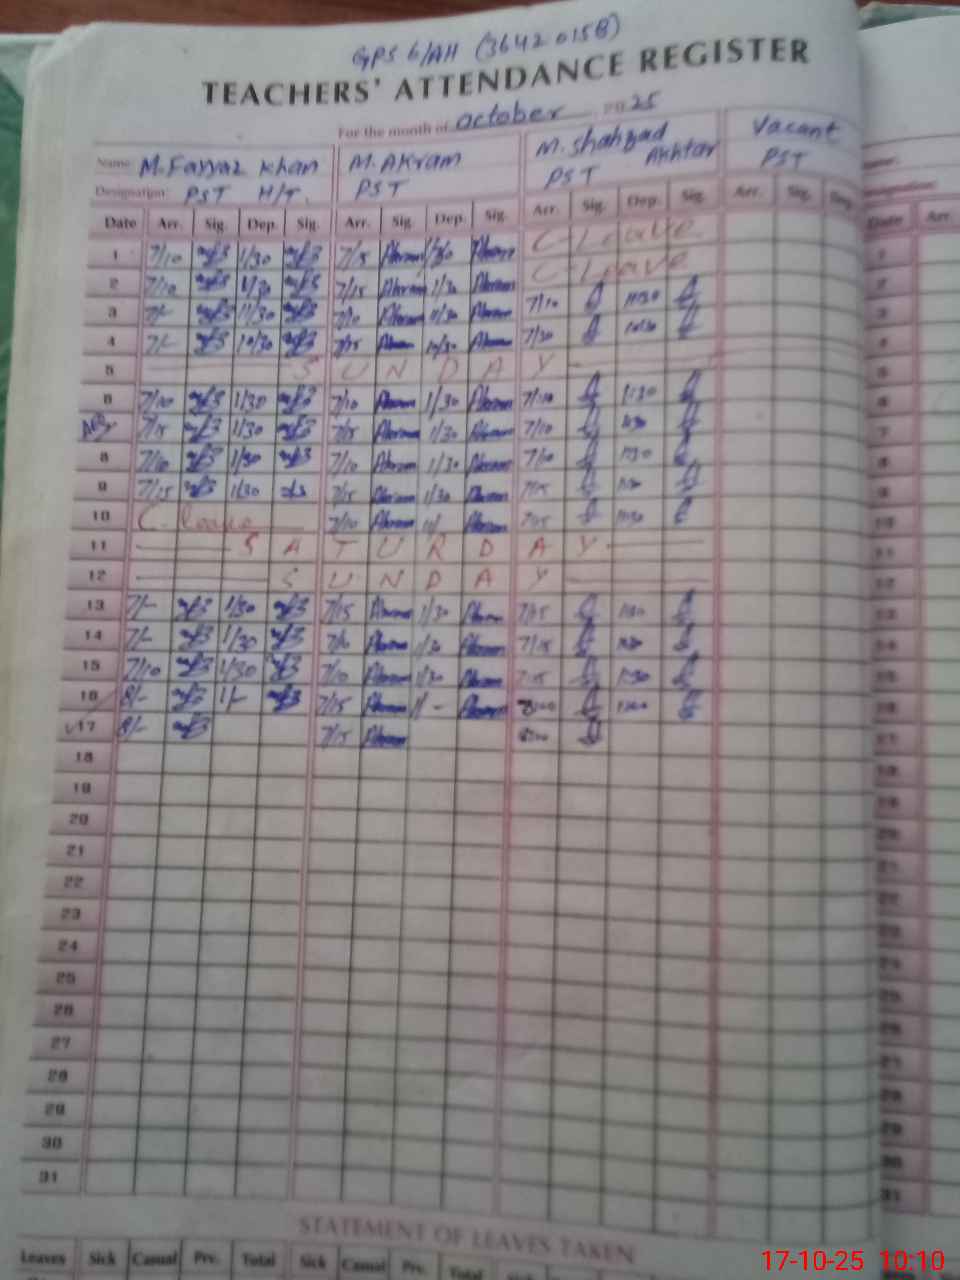 GPS 6/AH (36420158)
TEACHERS' ATTENDANCE REGISTER
For the month of October 2025
Name: M. Fayyaz Khan M. Akram M. Shahzad Akhtar Vacant
Designation: PST H/T. PST PST PST
Date Arr. Sig. Dep. Sig. Arr. Sig. Dep. Sig. Arr. Sig. Dep. Sig. Arr. Sig. Dep.
1 7/10 1/30 7/15 Akram 1/30 Akram C. Leave
2 7/10 1/30 7/15 Akram 1/30 Akram C. Leave
3 7/- 11/30 7/10 Akram 11/30 Akram 7/10 11:30
4 7/- 10/30 7/15 Akram 10/30 Akram 7/30 10:30
5 SUNDAY
6 7/10 1/30 7/10 Akram 1/30 Akram 7/10 1:30
7/15 1/30 7/15 Akram 1/30 Akram 7/10 1:30
8 7/10 1/30 7/10 Akram 1/30 Akram 7/10 1:30
9 7/15 1/30 7/15 Akram 1/30 Akram 7/15 1:30
10 C. leave 7/10 Akram 11/ Akram 7/15 11:30
11 SATURDAY
12 SUNDAY
13 7/- 1/30 7/15 Akram 1/30 Akram 7/15 1:30
14 7/- 1/30 7/10 Akram 1/30 Akram 7/15 1:30
15 7/10 1/30 7/10 Akram 1/30 Akram 7/15 1:30
16 8/- 1/- 7/15 Akram 1/- Akram 8:00 1:00
17 8/- 7/15 Akram 8:00
18
19
20
21
22
23
24
25
26
27
28
29
30
31
STATEMENT OF LEAVES TAKEN
Leaves Sick Casual Prv. Total Sick Casual Prv. Total Sick
17-10-25 10:10